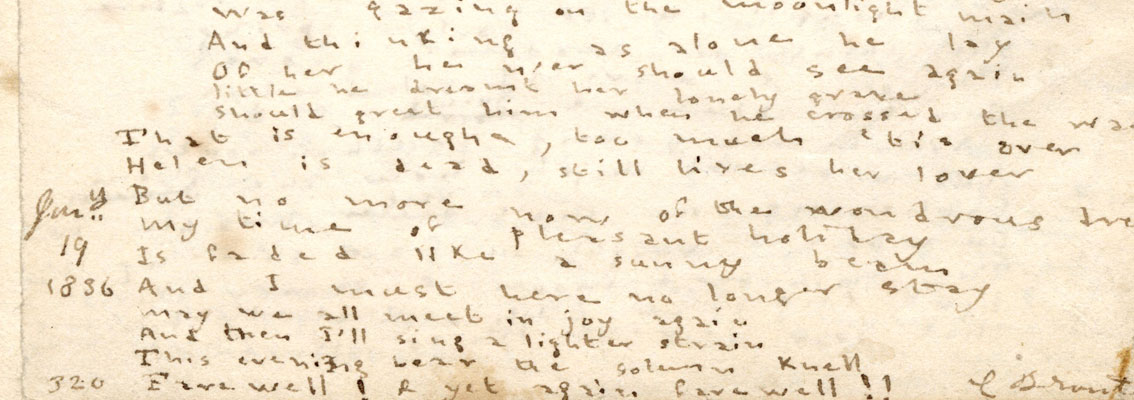 Was gazing on the moonlight main
And thinking as alone he lay
Of her he n'er should see again
little he dreamt her lonely grave
should greet him when he crossed the
That is enough, too much 'tis over
Helen is dead, still lives her lover
Jany But no more now of the wondrous
My time of pleasant holiday
19 Is faded like a sunny beam
1836 And I must here no longer stay
may we all meet in joy again
And then I'll sing a lighter strain
This evening hear the solemn knell
320 Farewell! & yet again farewell!!
C Bront